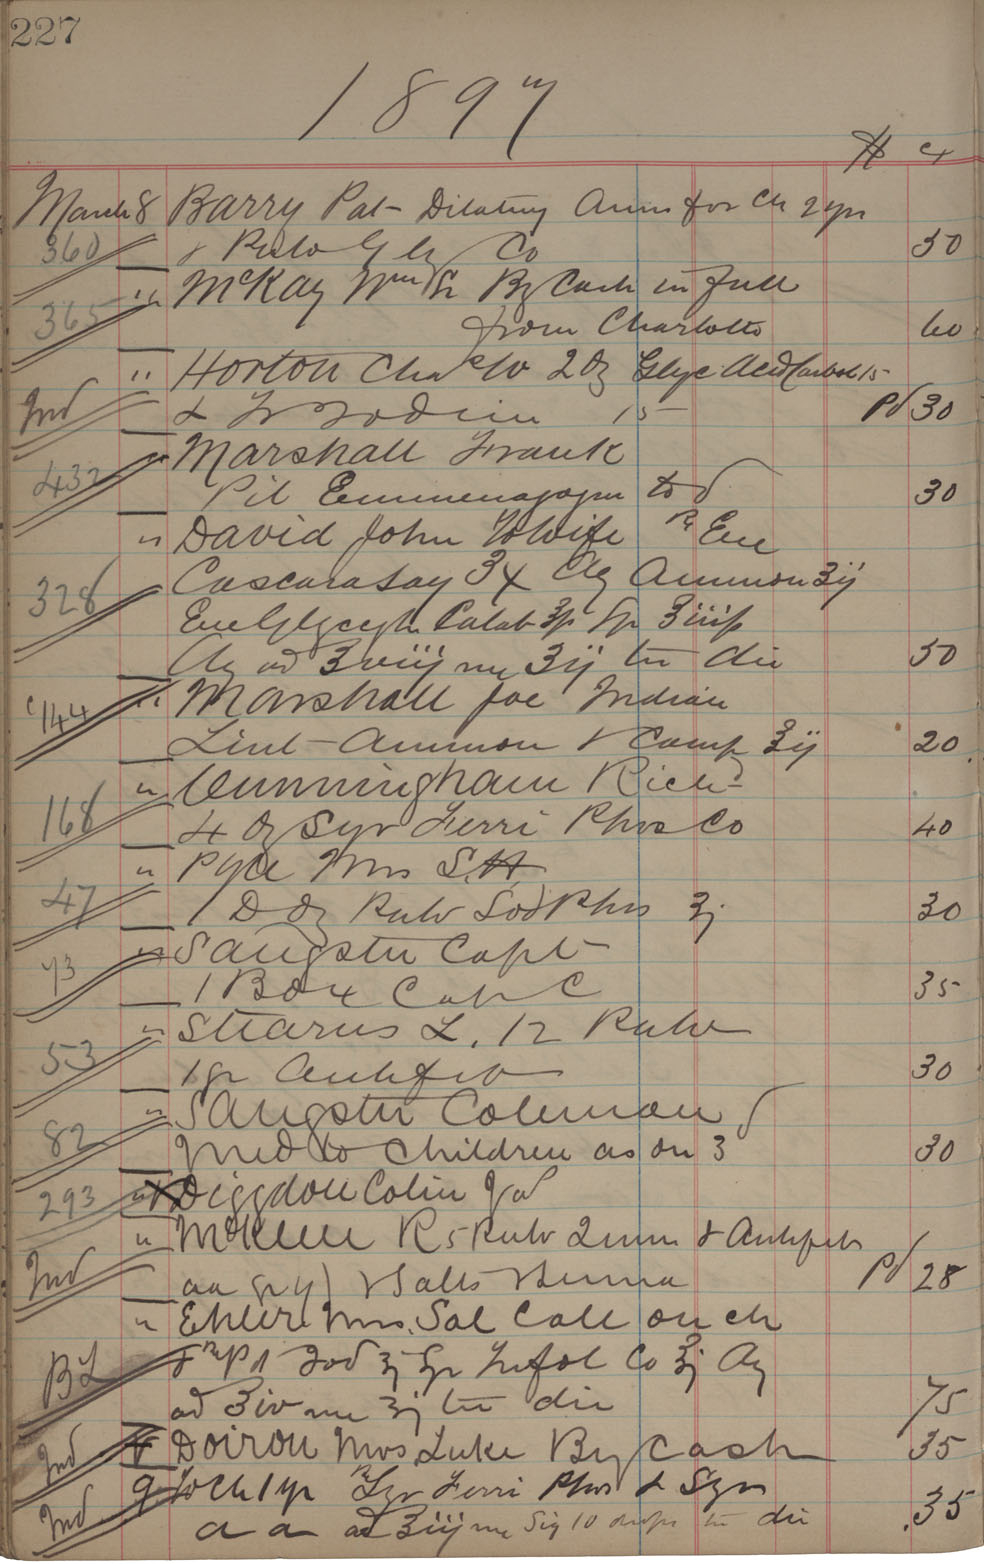 227
1897
$ ct
March 8 Barry Pat Dilating Anus for Ch 2 yrs
360 & Pulv Gly Co 50
" McKay Wm Sr By Cash in full
365 from Charlotte 60
" Horton Chas to 2 oz Glyc Acid Carbol 15
Ind & Tr Iodine 15 Pd 30
" Marshall Frank
432 Pil Emmenagogue to d 30
" David John To Wife Rx Eue
328 Cascara Sag ʒx Aq Ammon ʒij
Eue Glycyrh Palat ʒp Syr ʒiiip
Aq ad ʒviij me ʒij ter die 50
144 " Marshall Joe Indian
Lint Ammon & Camp ʒij 20
" Cunningham Richd
168 4 oz Syr Ferri Phos Co 40
" Pyle Mrs S.H.
47 1 Doz Pulv Sod Phos ʒj 30
" Sangster Capt
73 1 Box Cap C 35
" Stearns L. 12 Pulv
53 1 gr Antifeb 30
" Sangster Coleman
82 Med to Children as on 3 30
293 " X Diggdon Colin
" McKeue R 5 Pulv Quin & Antifeb
Ind aa gr & Salts Senna Pd 28
" Ehler Mrs. Sol Call on ch
BL Pot Iod ʒj Syr Trifol Co ʒj Aq
ad ʒiv me ʒj ter die 75
Ind Doiron Mrs Luke By Cash 35
9 To Ch 1 yr Rx Syr Ferri Phos & Syr
Ind aa ad ʒiij me Sig 10 drops ter die .35